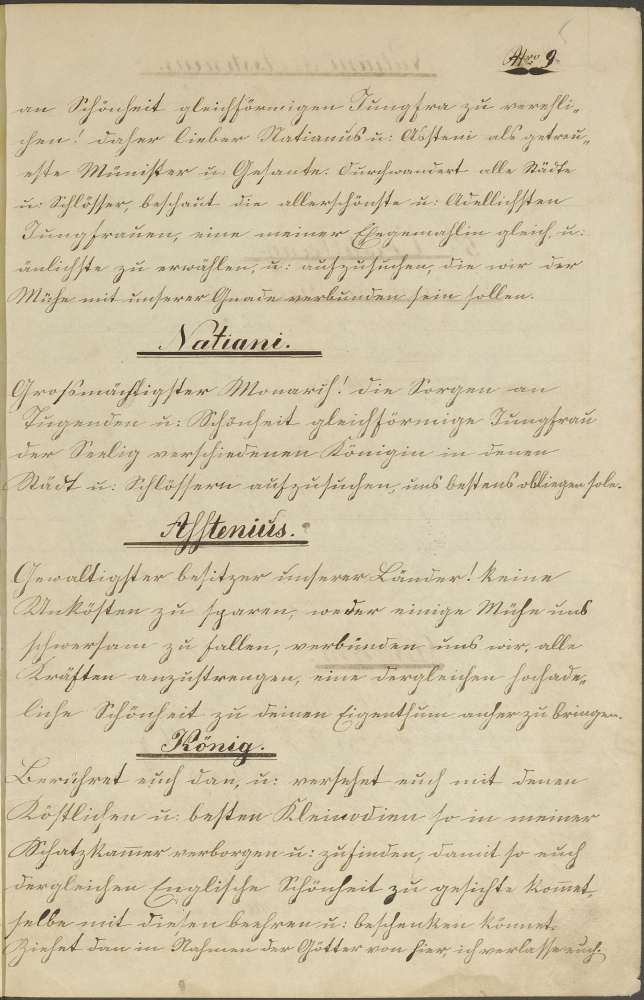 Nro 9.
an Schönheit gleichförmigen Jungfra zu verehli„
chen! daher lieber Natianus u: Assteni als getreu„
este Münister u: Gesante. Durchwandert alle Städte
u: Schlösser, beschaut die allerschönste u: Adellichsten
Jungfrauen, eine meiner Ehegemahlin gleich, u:
änlichste zu erwählen, u: aufzusuchen, die wir der
Mühe mit unserer Gnade verbunden sein sollen.
Natiani.
Grossmächtigster Monarch! die Sorgen an
Tugenden u: Schönheit gleichförmige Jungfrau
der Seelig verschiedenen Königin in denen
Städt u: Schlössern aufzusuchen, uns bestens obliegen sole.
Asstenius.
Gewaltigster besitzer unserer Länder! keine
Unkösten zu sparen, weder einige Mühe uns
schwersam zu fallen, verbünden uns wir, alle
Kräften anzustrengen, eine dergleichen hochade„
liche Schönheit zu deinen Eigenthum anher zu bringen.
König.
Berühret euch dan, u: versehet euch mit denen
Köstlichen u: besten Kleinodien so in meiner
Schatzkam̄er verborgen u: zufinden, damit so euch
dergleichen Englische Schönheit zu gesichte kom̄et,
selbe mit diesen beehren u: beschenken könnet.
Ziehet dan in Nahmen der Götter von hier, ich verlasse euch.